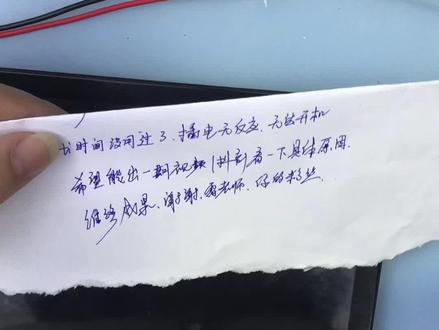 长时间没用过了、插电无反应、无法开机
希望能出一期视频(抖音)看一下具体原因、
维修成果、谢谢、老师、你的粉丝